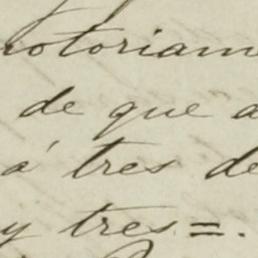 notoriam
de que a
á tres de
y tres=.